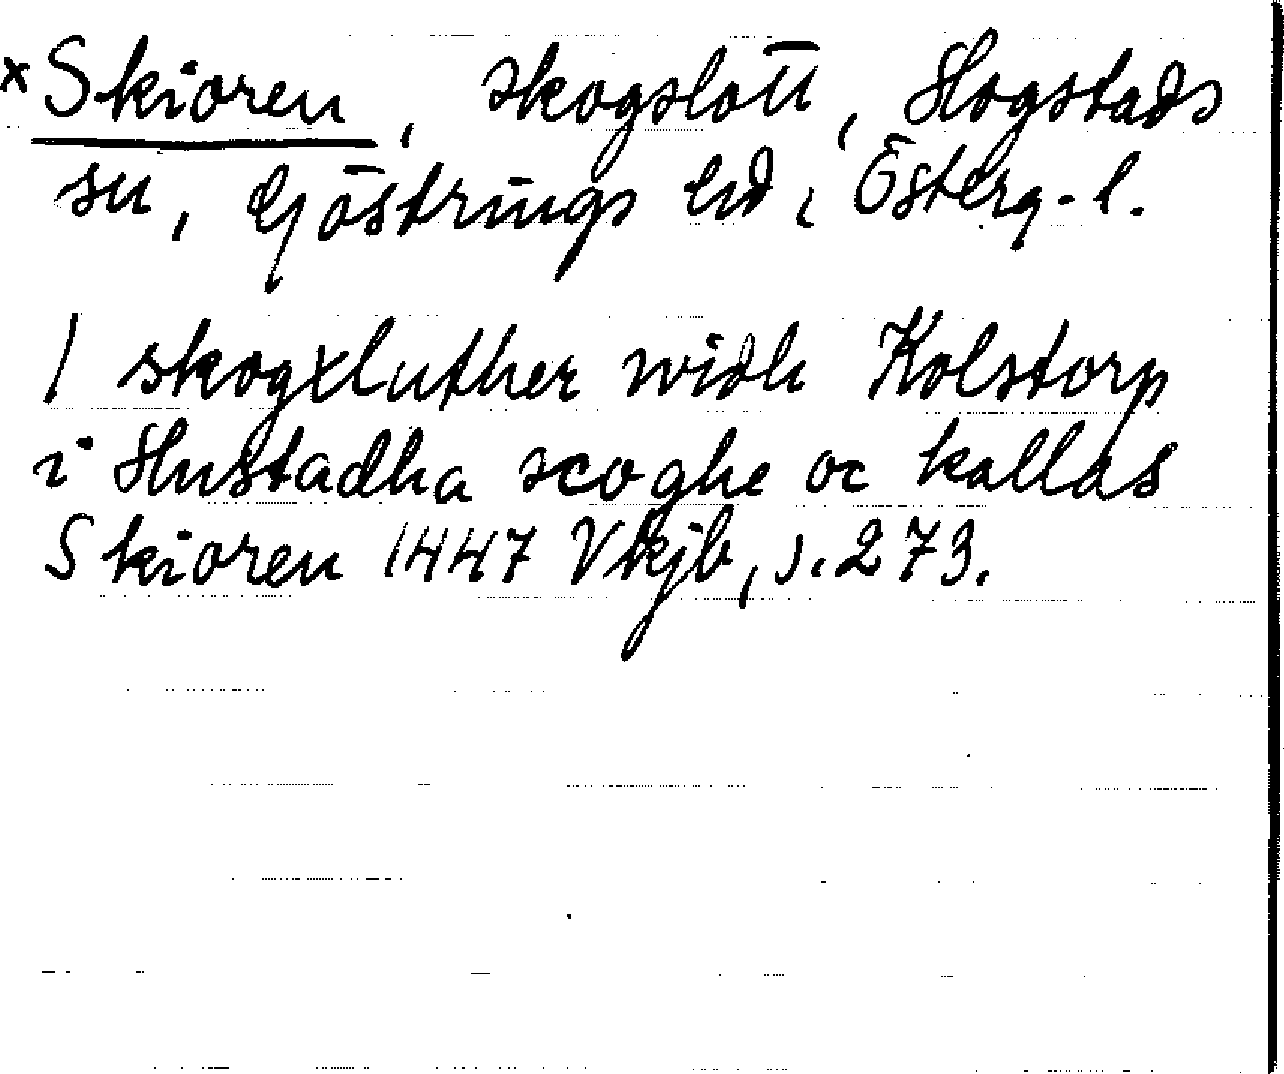 ×Skioren, skogslott, Hogstads
sn, Göstrings hd, Österg. l.
1 skogxluther widh Kolstorp
i Hustadha scoghe oc kallas
Skioren 1447 Vkjb, s. 273.